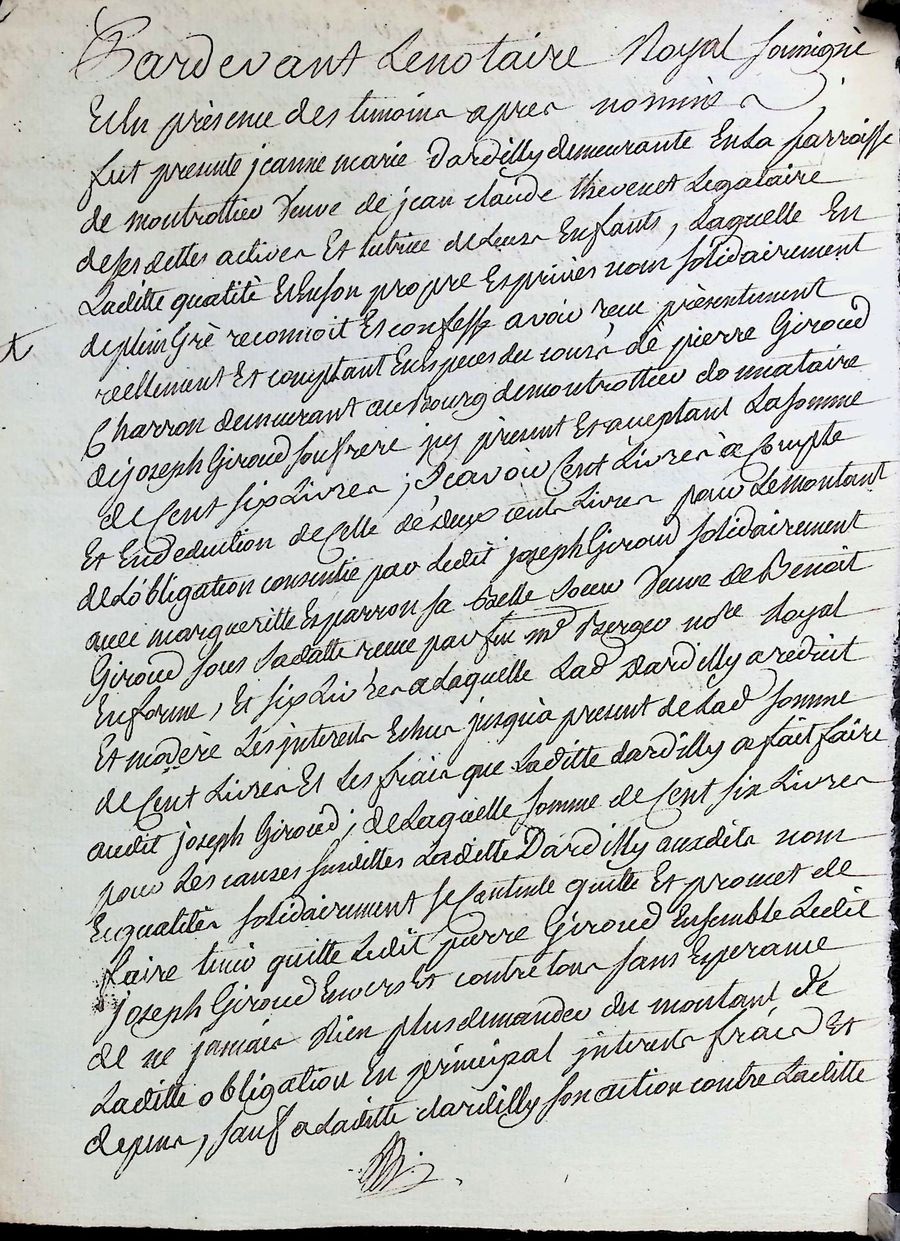 Pardevant Lenotaire Royal soussigné
Et En présence des temoins apres nommés
fut presente jeanne marie Dardilly demeurante En La parroisse
de montrottier veuve de jean claude thevenet Legataire
de ses dettes actives Et tutrice de Leurs Enfants, Laquelle En
Laditte qualité Et En son propre Et privés nom solidairement
de plein Gré reconnoit Et confesse avoir receu présentement
réellement Et comptant En Especes du cours dé pierre Giroud
Charron demeurant au Bourg de montrottier donnataire
de joseph Giroud son frere jcy présent Et acceptant La somme
de Cent six Livres ; scavoir Cent Livres à Compte
Et En deduction de Celle dé deux cents Livres pour Le montant
de Lóbligation consentie par Ledit joseph Giroud solidairement
avec margueritte Esparron sa Belle soeur veuve de Benoit
Giroud sous sa datte receue par feu me Berger nore Royal
En forme, Et six Livres a Laquelle Lad Dardilly a reduit
Et modéré Les jnterets Echus jusqu'a present de Lad somme
de Cent Livres Et Les frais que Laditte dardilly a fait faire
audit joseph Giroud ; de Laquelle somme de Cent six Livres
pour Les causes susdittes Laditte Dardilly auxdits nom
Et qualités solidairement se Contente quitte Et promet de
faire tenir quitte Ledit pierre Giroud Ensemble Ledit
joseph Giroud Envers Et contre tous sans Esperance
de ne jamais Rien plus demander du montant de
Laditte obligation En principal jnterets frais Et
depens, sauf a Laditte dardilly son action contre Laditte